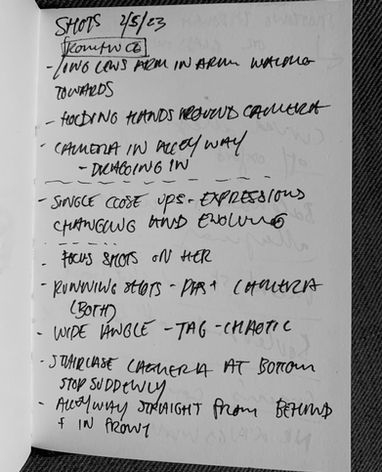 SHOTS 2/5/23
ROMANCE
- LONG LENS ARM IN ARM WALKING
TOWARDS
- HOLDING HANDS AROUND CAMERA
- CAMERA IN ALLEYWAY
- DRAGGING IN
- SINGLE CLOSE UPS - EXPRESSIONS
CHANGING AND EVOLVING
- FOCUS SHOTS ON HER
- RUNNING SHOTS - PAST CAMERA
(BOTH)
- WIDE ANGLE - TAG - CHAOTIC
- STAIRCASE CAMERA AT BOTTOM
STOP SUDDENLY
- ALLEYWAY STRAIGHT FROM BEHIND
+ IN FRONT